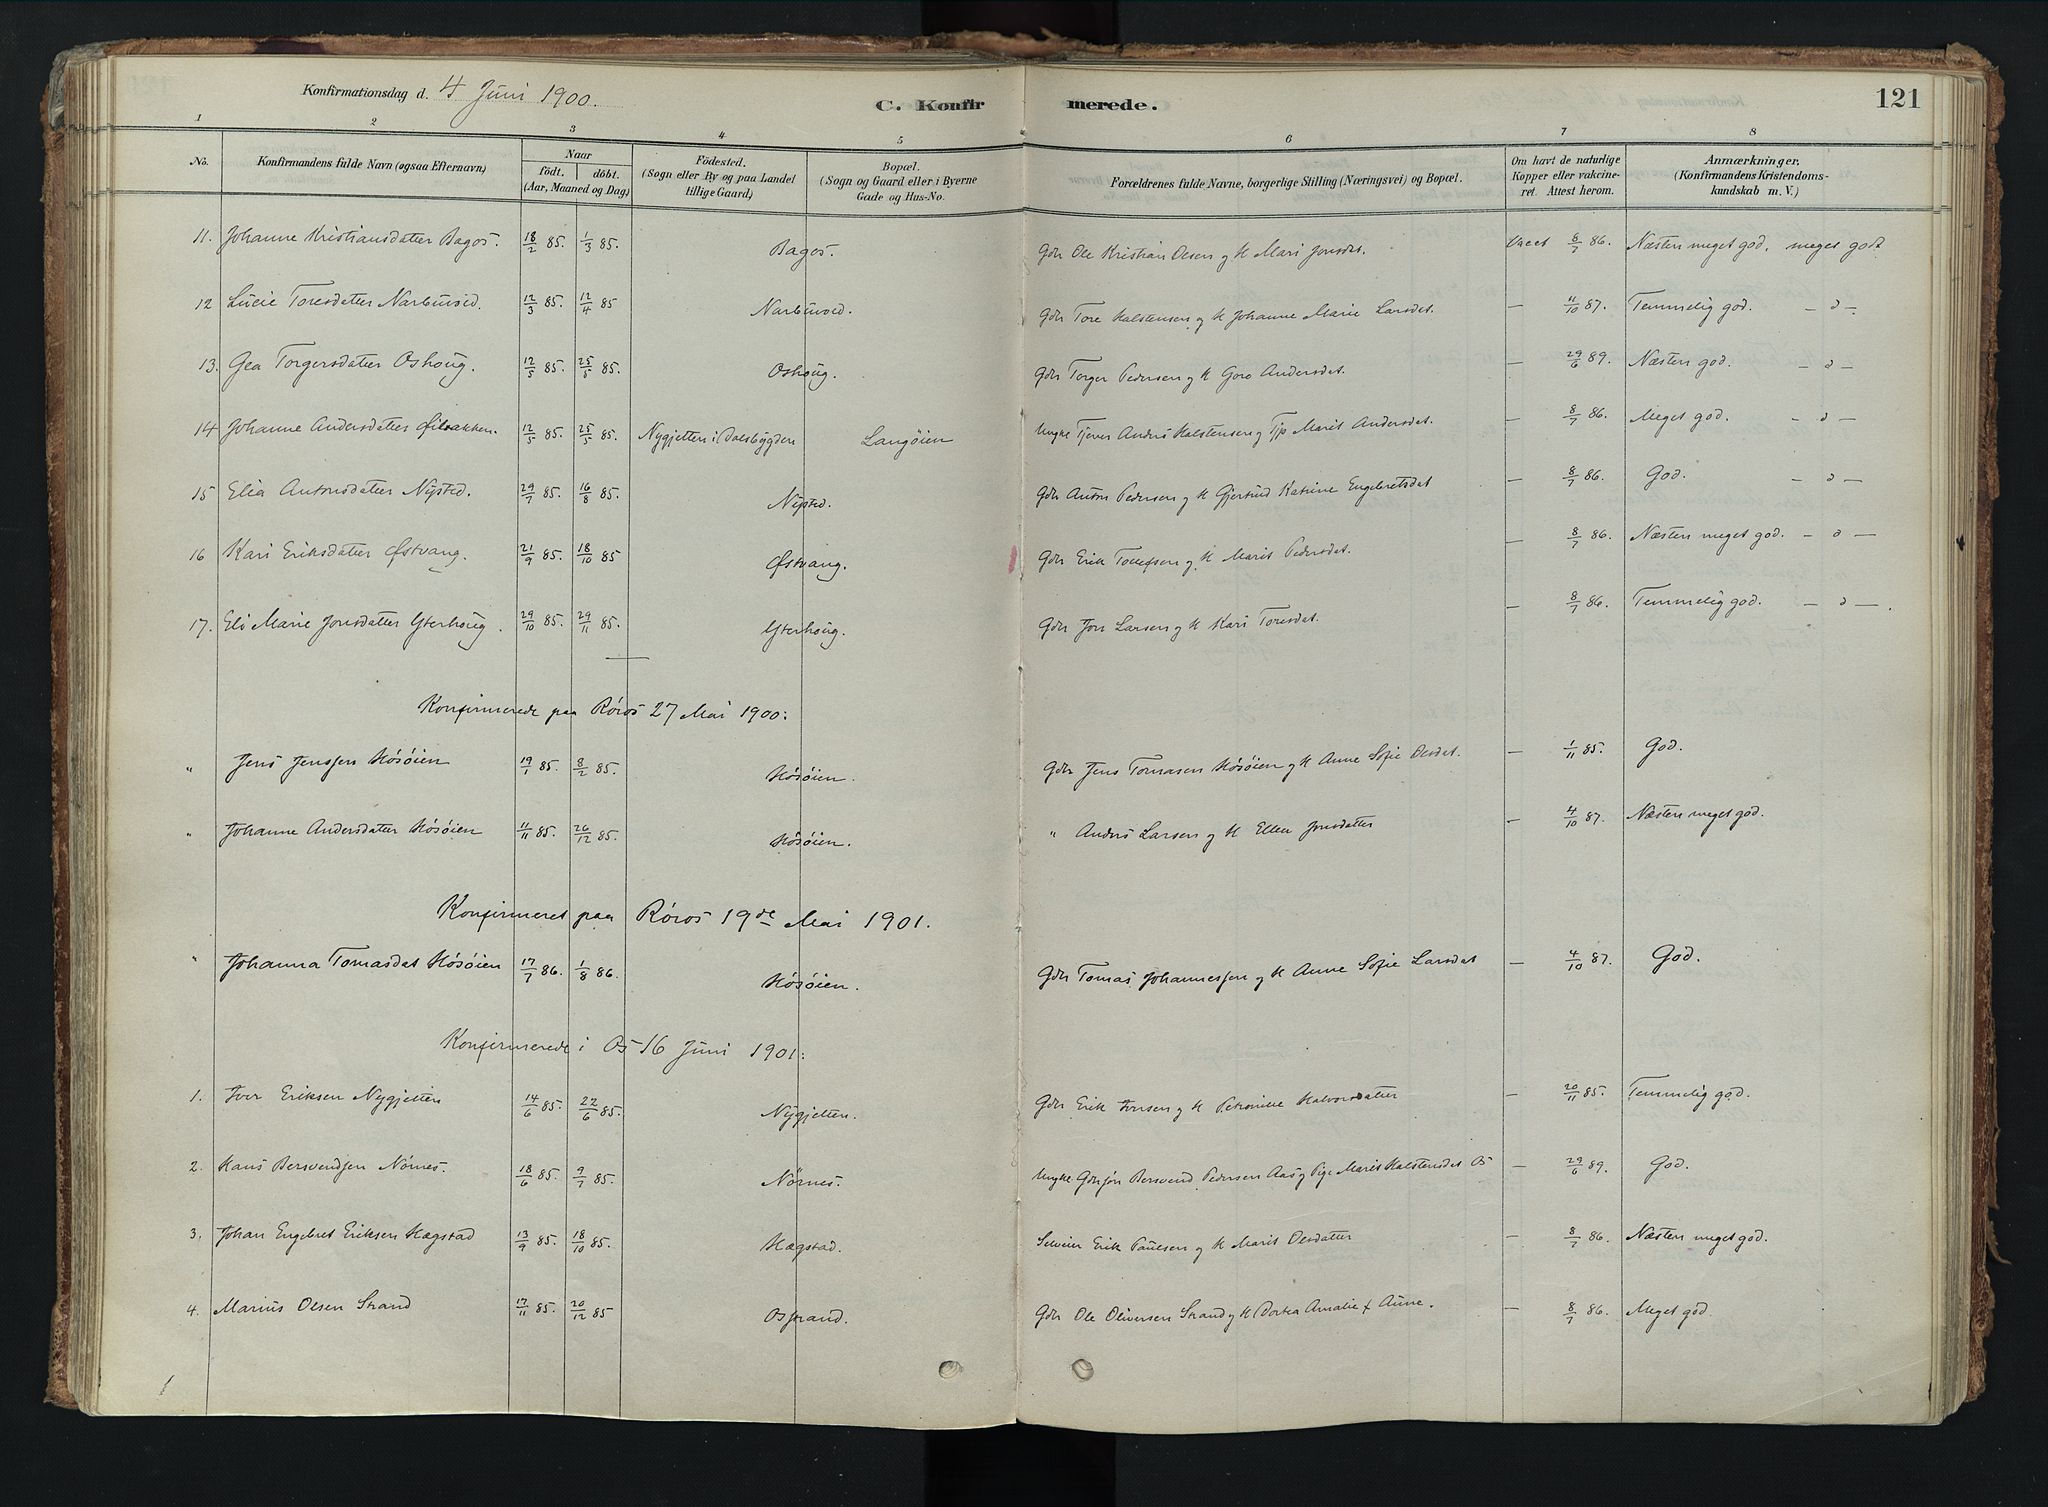 Konfirmationsdag d. 4 Juni 1900.
C. Konfirmerede.
121
1 2 3 4 5 6 7 8
No. Konfirmandens fulde Navn (ogsaa Efternavn) Naar födt. döbt. (Aar, Maaned og Dag) Födested. (Sogn eller By og paa Landet tillige Gaard) Bopæl. (Sogn og Gaard eller i Byerne Gade og Hus-No. Forældrenes fulde Navne, borgerlige Stilling (Næringsvei) og Bopæl. Om havt de naturlige Kopper eller vakcineret. Attest herom. Anmærkninger. (Konfirmandens Kristendomskundskab m. V.)
11. Johanne Kristiansdatter Bagos. 18/2 85. 1/3 85. Bagos. Gdr Ole Kristian Olsen og H Mari Jonsdat. Vacct 8/7 86. Næsten meget god. meget godt
12 Lucie Toresdatter Narbuvod. 12/3 85. 12/4 85 Narbuvod. Gdr Tore Halstensen og H Johanne Marie Larsdat. — 11/10 87. Temmelig god. — " —
13. Gea Torgersdatter Oshoug. 12/5 85. 25/5 85. Oshoug. Gdr Torger Pedersen og H Goro Andersdat. — 29/6 89. Næsten god. — " —
14 Johanne Andersdatter 12/5 85. 25/5 85. Nygjetten i Dalsbygden Langøien Ungke Tjener Anders Halstensen og Tjp Marit Andersdat. — 8/7 86. Meget god. — " —
15 Elea Antonsdatter Nysted. 29/7 85. 16/8 85. Nysted. Gdr Anton Pedersen og H Gjertrud Katrine Engebretsdat — 8/7 86. God. — " —
16 Kari Eriksdatter Østvang. 21/9 85. 18/10 85 Østvang. Gdr Erik Tollefsen og H Marit Pedersdat. — 8/7 86. Næsten meget god. — " —
17. Eli Marie Jonsdatter Ytterhoug. 29/10 85. 29/11 85. Ytterhoug. Gdr Jon Larsen og H Kari Toresdat. — 8/7 86. Temmelig god. — " —.
Konfirmerede paa Røros 27 Mai 1900:
" Jens Jenssen Høsøien 19/1 85. 8/2 85. Høsøien. Gdr Jens Tomasen Høsøien og H Anne Sofie Olesdat. — 1/11 85. God.
" Johanne Andersdatter Høsøien 11/11 85. 26/12 85. Høsøien. " Anders Larsen og H Ellen Jonsdatter — 4/10 87. Næsten meget god.
Konfirmeret paa Røros 19de Mai 1901.
" Johanna Tomasdat Høsøien 17/7 86. 1/8 86. Høsøien. Gdr Tomas Johannessen og H Anne Sofie Larsdat — 4/10 87. God.
Konfirmerede i Os 16 Juni 1901:
1. Iver Eriksen Nygjetten 14/6 85. 22/6 85. Nygjetten. Gdr Erik Iversen og H Petronille Halvorsdatter — 20/11 85. Temmelig god.
2. Hans Bersvendsen Nørnes. 18/6 85. 9/7 85. Nørnes. Ungke Gdrsøn Bersvend Pedersen Aas og Pige Marit Halstensdat Os — 29/6 89. God.
3. Johan Engebret Eriksen Hægstad 13/9 85. 18/10 85. Hægstad. Selveier Erik Paulsen og H Marit Olsdatter — 8/7 86. Næsten meget god.
4. Marius Olsen Strand 17/11 85. 20/12 85 Osstrand. Gdr Ole Oliversen Strand og H Dortea Amalie f Aune. — 8/7 86. Meget god.